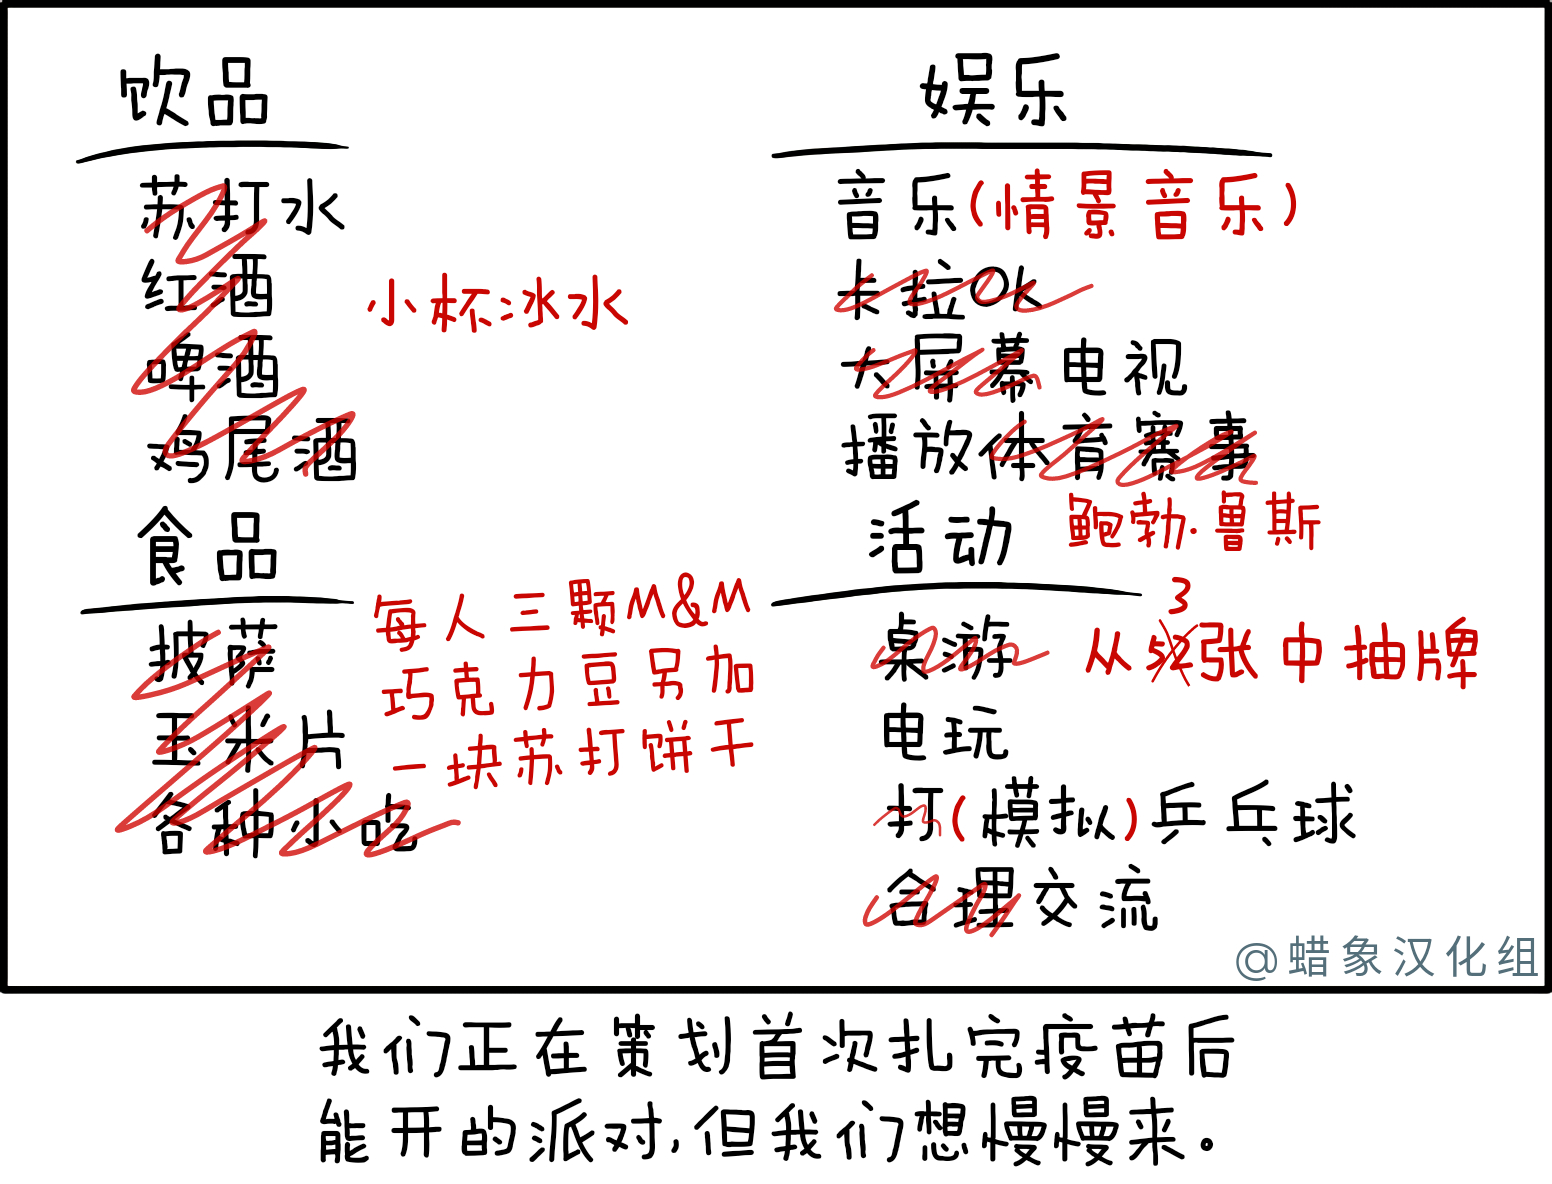 饮品
苏打水
红酒
啤酒
鸡尾酒
小杯:冰水
食品
披萨
玉米片
各种小吃
每人三颗M&M
巧克力豆另加
一块苏打饼干
娱乐
音乐(情景音乐)
卡拉OK
大屏幕电视
播放体育赛事
鲍勃·鲁斯
活动
桌游
3
从52张中抽牌
电玩
打(模拟)乒乓球
合理交流
@蜡象汉化组
我们正在策划首次扎完疫苗后
能开的派对,但我们想慢慢来。